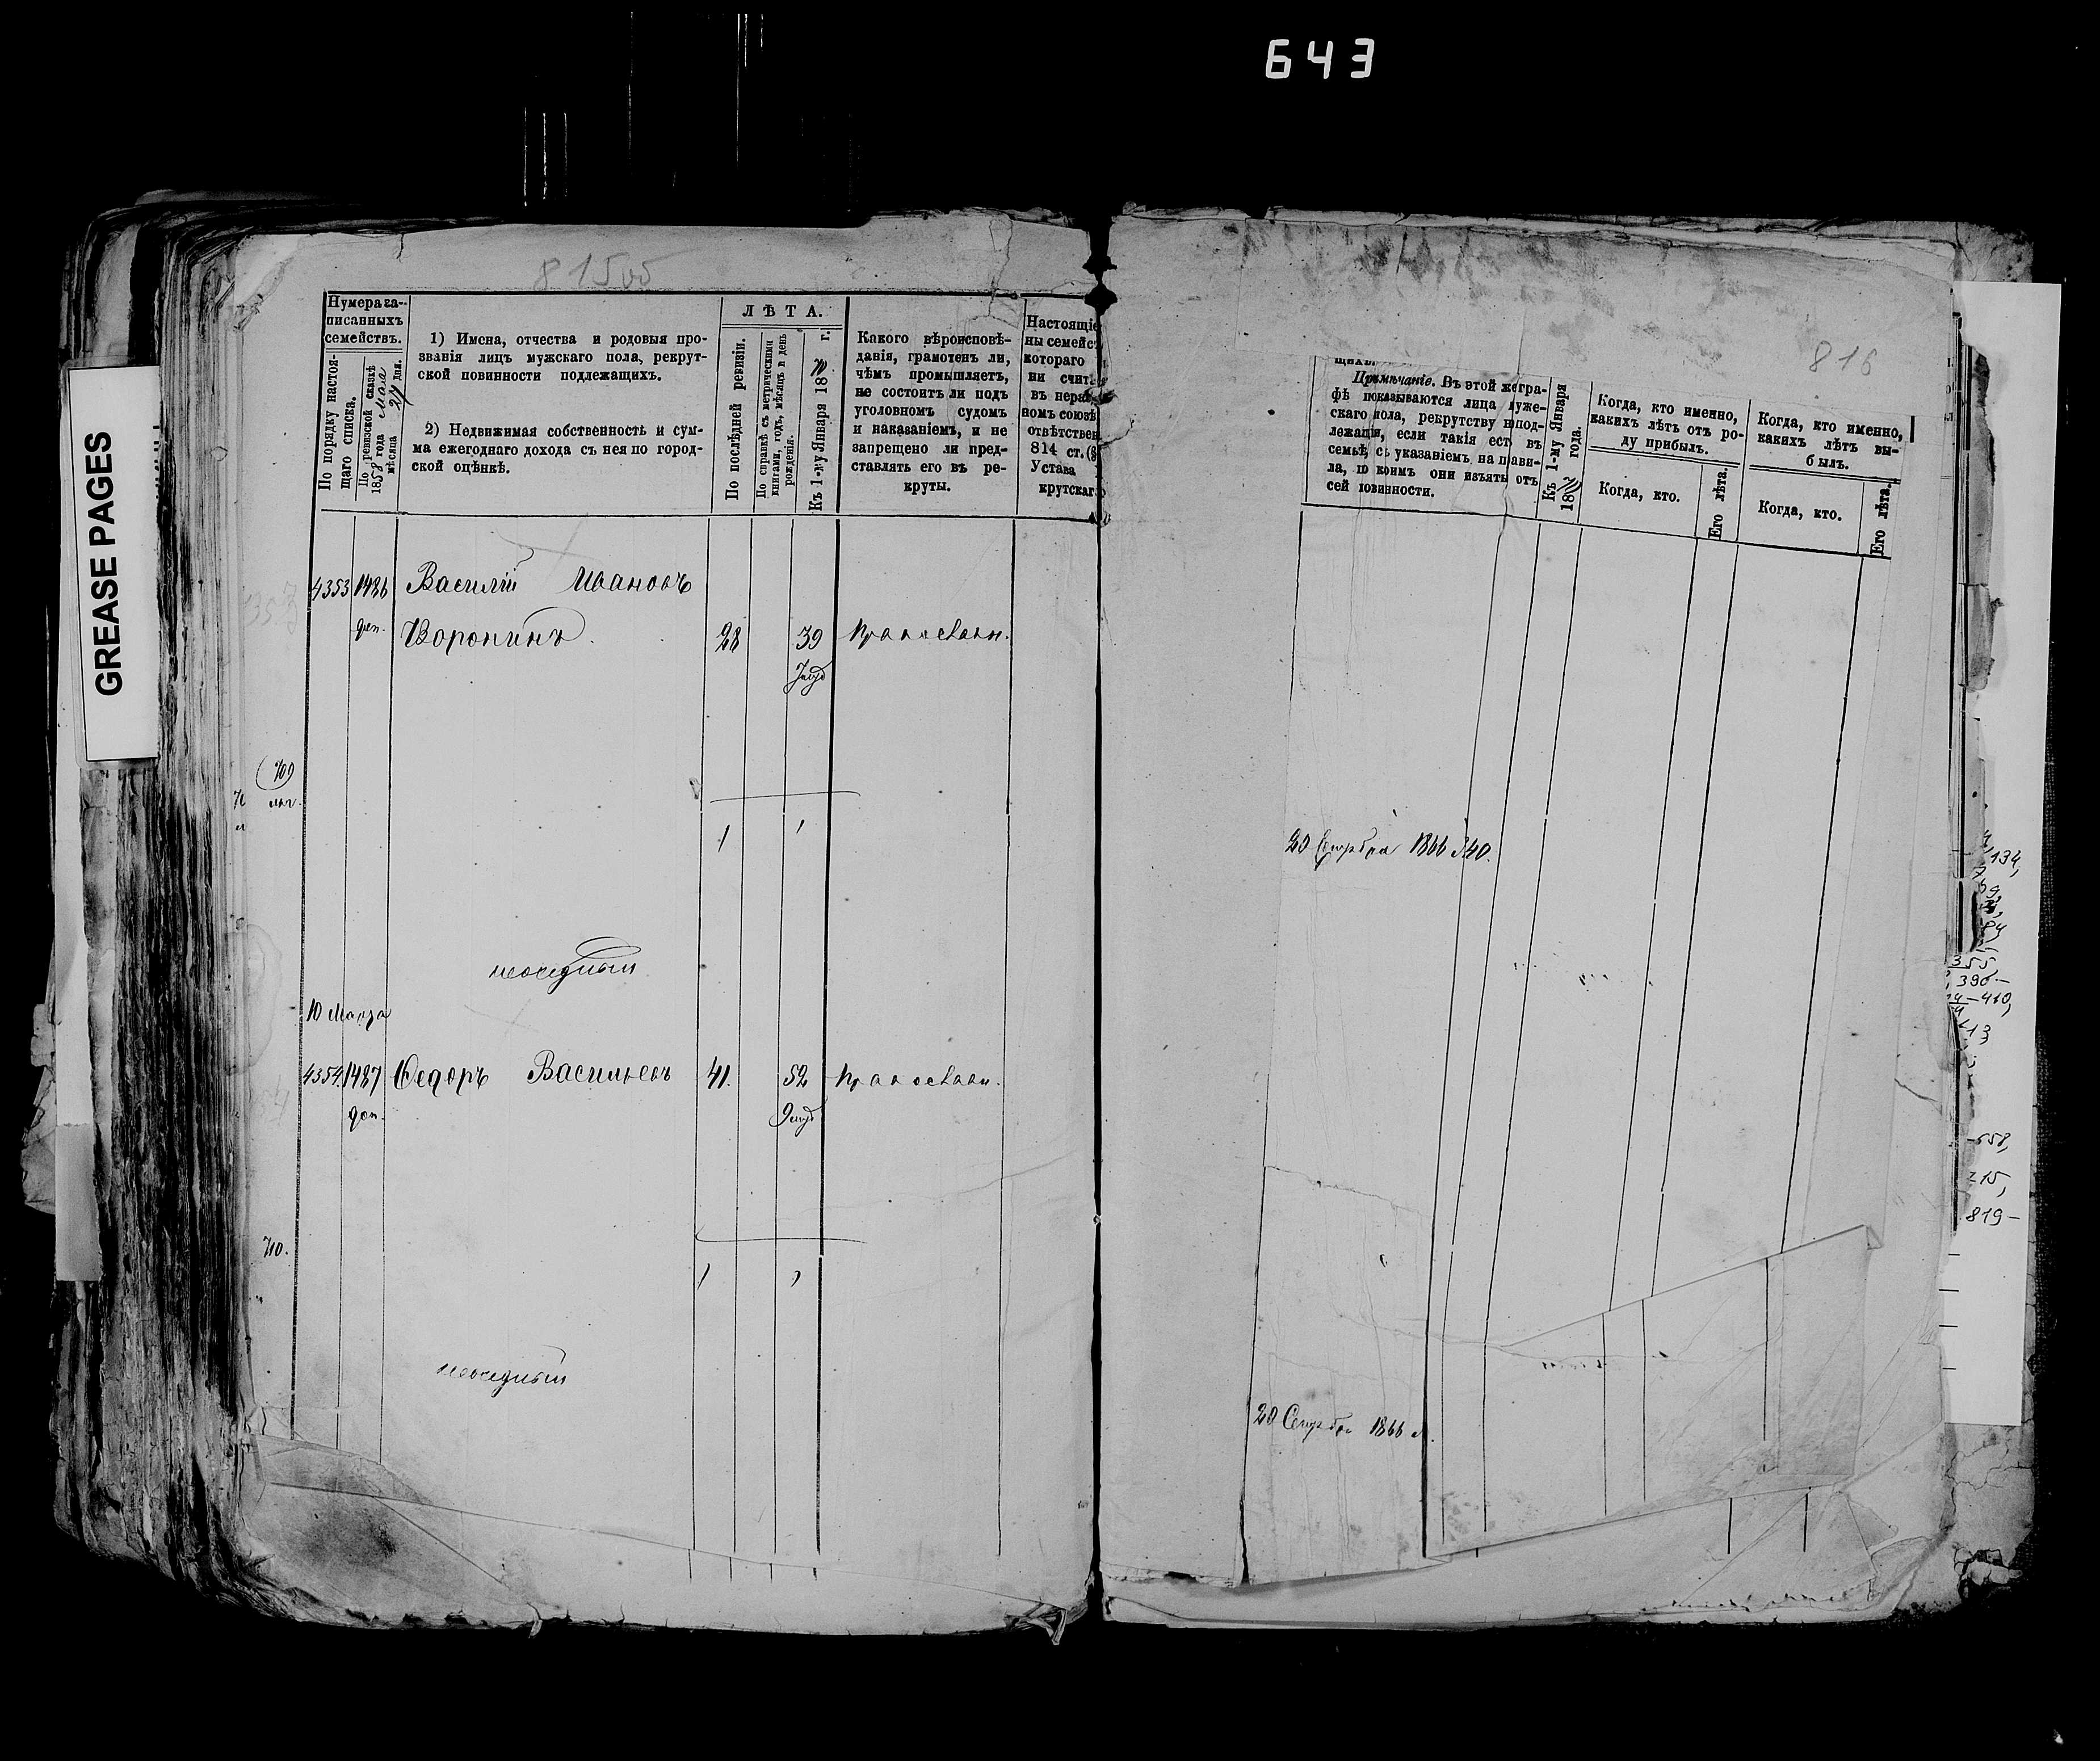 643
GREASE PAGES
815об
Нумера за-
писанныхъ
семействъ.
По порядку настоя-
щаго списка.
По ревизской сказкѣ
1858 года мѣсяца Мая 24 дня.
1) Имена, отчества и родовыя про-
званія лицъ мужскаго пола, рекрут-
ской повинности подлежащихъ.
2) Недвижимая собственность и сум-
ма ежегоднаго дохода съ нея по город-
ской оцѣнкѣ.
ЛѢТА.
По послѣдней ревизіи.
По справкѣ съ метрическими
книгами, годъ, мѣсяцъ и день
рожденія.
Къ 1-му Января 1870 г.
Какого вѣроисповѣ-
данія, грамотенъ ли,
чѣмъ промышляетъ,
не состоитъ ли подъ
уголовномъ судомъ
и наказаніемъ, и не
запрещено ли пред-
ставлять его въ ре-
круты.
Настоящіе
ны семейс
котораго
ни счит
въ нераз
номъ союзѣ
отвѣтствен
814 ст. (
Устава
крутскаг
4353 1486 Василій Ивановъ
доп. Воронинъ. 28 39 православн.
709
1 1
неоседлый
10 Марта
4354 1487 Ѳедоръ Васильевъ 41. 52 православн.
доп.
710.
1 1
неоседлый
816
щихъ.
Примѣчаніе. Въ этой же гра-
фѣ показываются лица муже-
скаго пола, рекрутству непод
лежащія, если такія есть въ
семьѣ, съ указаніемъ на прави-
ла, по коимъ они изъяты отъ
сей повинности.
Къ 1-му Января
18 года.
Когда, кто именно,
какихъ лѣтъ отъ ро-
ду прибылъ.
Когда, кто.
Его лѣта.
Когда, кто именно,
какихъ лѣтъ вы-
былъ.
Когда, кто.
Его лѣта.
20 Сентября 1866 г.
20 Сентября 1866 г.
134,
355,
390-
-410,
413
-658,
215,
819-